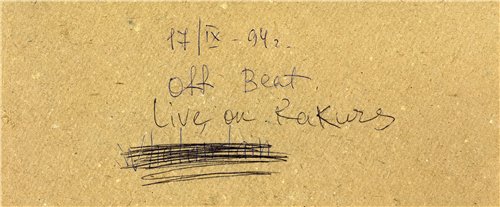 17/IX - 94г.
Off Beat.
Live on Rakurs